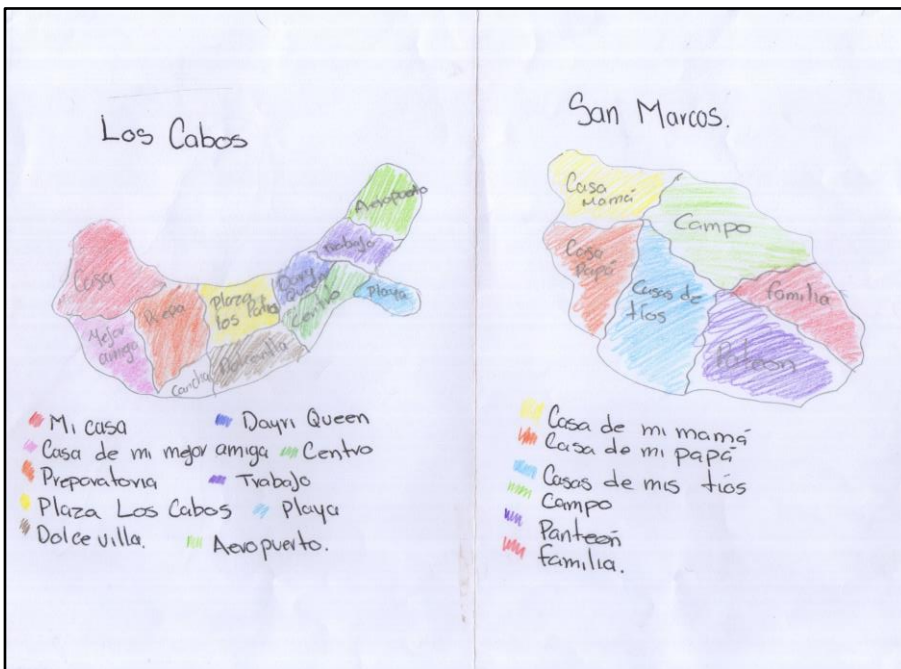 Los Cabos
Casa
Mejor
amiga
Prepa
Cancha
Plaza
los
Dayri
Queen
Centro
Trabajo
Aeropuerto
Playa
Mi casa
Casa de mi mejor amiga
Preparatoria
Plaza Los Cabos
Dolce villa.
Dayri Queen
Centro
Trabajo
Playa
Aeropuerto.
San Marcos.
Casa
Mamá
Casa
Papá
Casas de
tíos
Campo
familia
Panteon
Casa de mi mamá
Casa de mi papá
Casas de mis tíos
Campo
Panteoñ
familia.